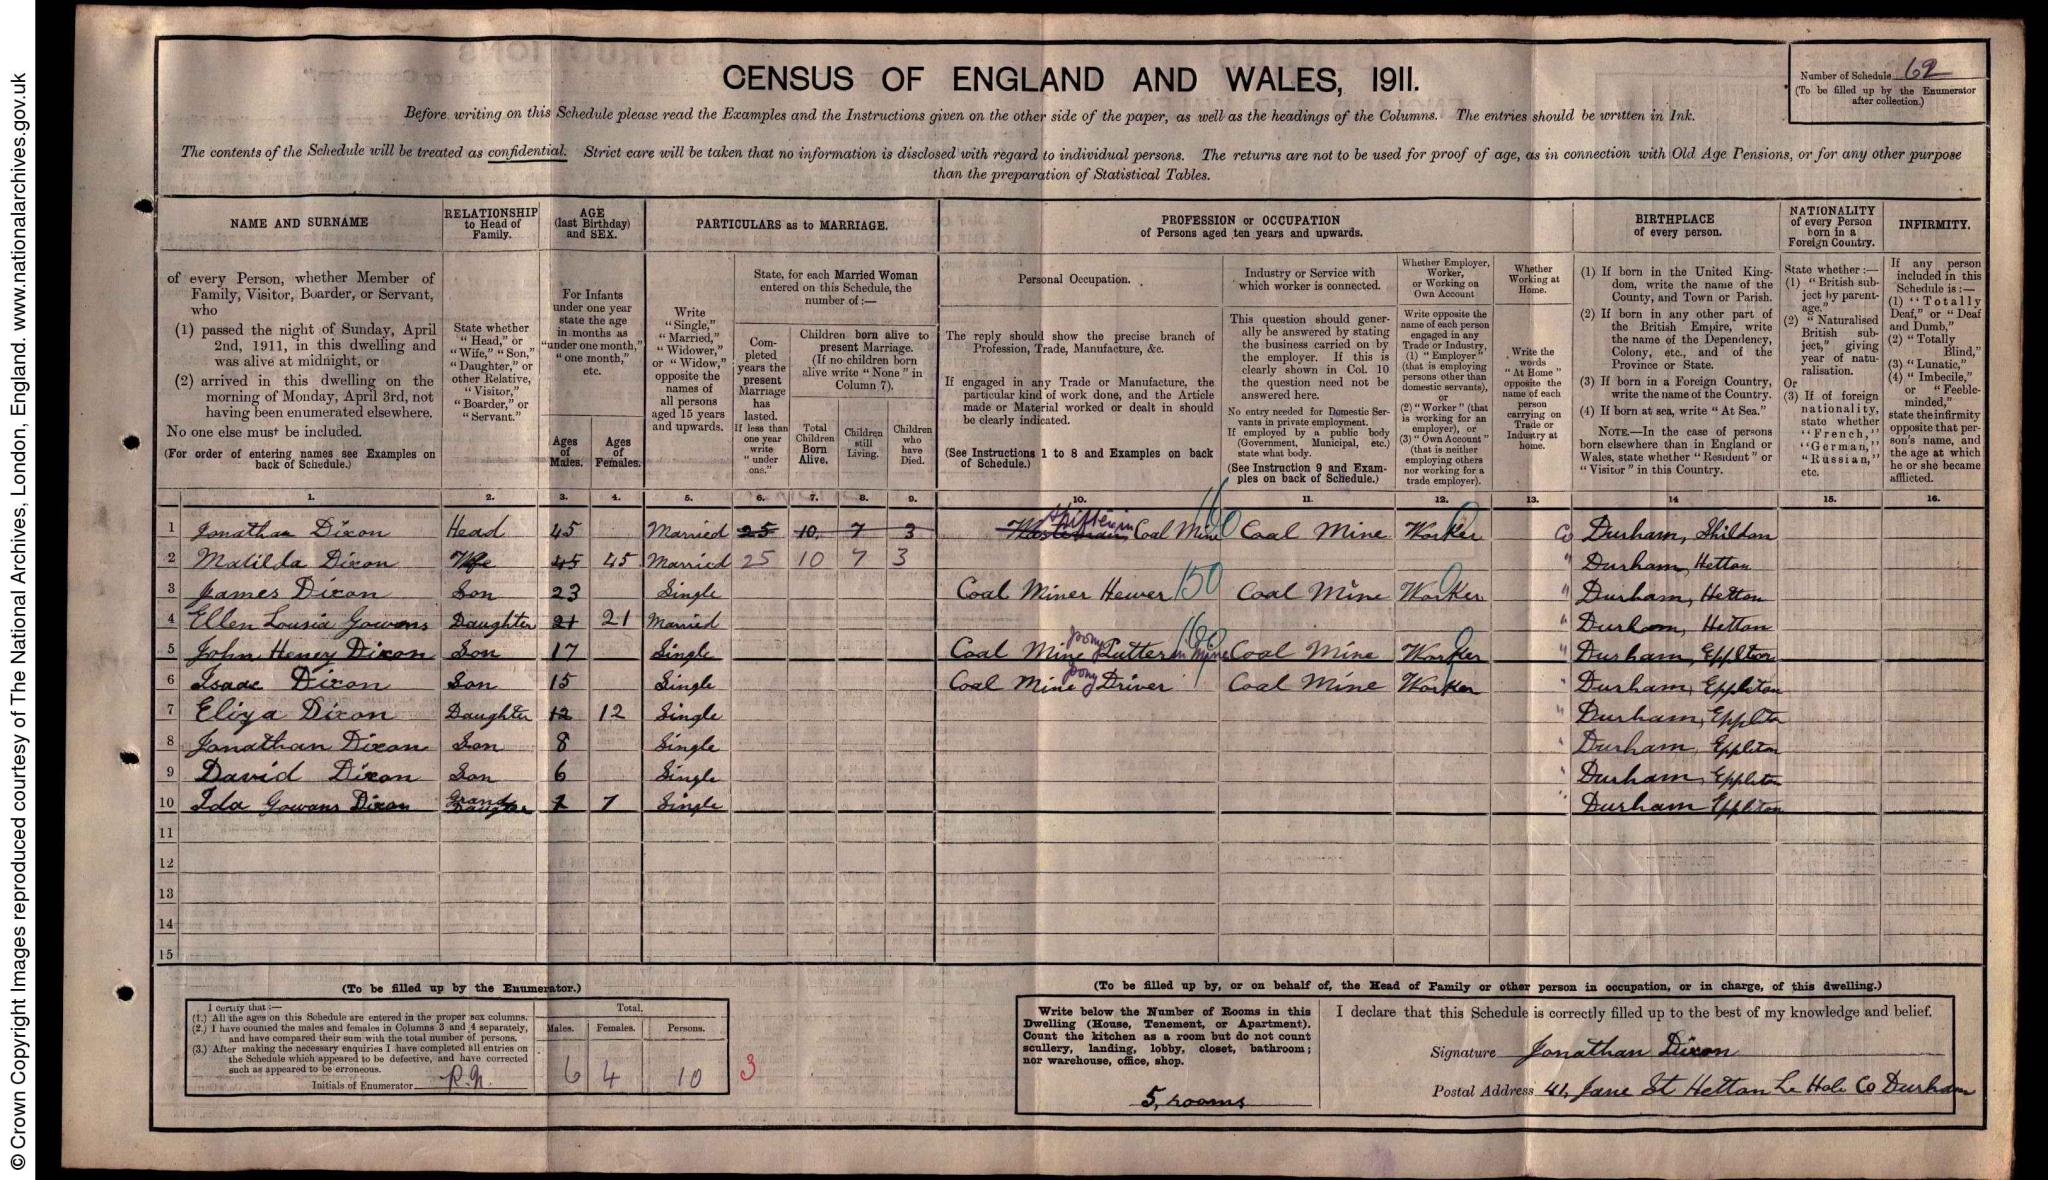 © Crown Copyright Images reproduced courtesy of The National Archives, London, England. www.nationalarchives.gov.uk
CENSUS OF ENGLAND AND WALES, 1911.
Number of Schedule 62
(To be filled up by the Enumerator
after collection.)
Before writing on this Schedule please read the Examples and the Instructions given on the other side of the paper, as well as the headings of the Columns. The entries should be written in Ink.
The contents of the Schedule will be treated as confidential. Strict care will be taken that no information is disclosed with regard to individual persons. The returns are not to be used for proof of age, as in connection with Old Age Pensions, or for any other purpose
than the preparation of Statistical Tables.
NAME AND SURNAME
of every Person, whether Member of
Family, Visitor, Boarder, or Servant,
who
(1) passed the night of Sunday, April
2nd, 1911, in this dwelling and
was alive at midnight, or
(2) arrived in this dwelling on the
morning of Monday, April 3rd, not
having been enumerated elsewhere.
No one else must be included.
(For order of entering names see Examples on
back of Schedule.)
RELATIONSHIP
to Head of
Family.
State whether
"Head," or
"Wife," "Son,"
"Daughter," or
other Relative,
"Visitor,"
"Boarder," or
"Servant."
AGE
(last Birthday)
and SEX.
For Infants
under one year
state the age
in months as
"under one month,"
"one month,"
etc.
Ages
of
Males.
Ages
of
Females.
PARTICULARS as to MARRIAGE.
Write
"Single,"
"Married,"
"Widower,"
or "Widow,"
opposite the
names of
all persons
aged 15 years
and upwards.
State, for each Married Woman
entered on this Schedule, the
number of:—
Com-
pleted
years the
present
Marriage
has
lasted.
If less than
one year
write
"under
one."
Children born alive to
present Marriage.
(If no children born
alive write "None" in
Column 7).
Total
Children
Born
Alive.
Children
still
Living.
Children
who
have
Died.
PROFESSION or OCCUPATION
of Persons aged ten years and upwards.
Personal Occupation.
The reply should show the precise branch of
Profession, Trade, Manufacture, &c.
If engaged in any Trade or Manufacture, the
particular kind of work done, and the Article
made or Material worked or dealt in should
be clearly indicated.
(See Instructions 1 to 8 and Examples on back
of Schedule.)
Industry or Service with
which worker is connected.
This question should gener-
ally be answered by stating
the business carried on by
the employer. If this is
clearly shown in Col. 10
the question need not be
answered here.
No entry needed for Domestic Ser-
vants in private employment.
If employed by a public body
(Government, Municipal, etc.)
state what body.
(See Instruction 9 and Exam-
ples on back of Schedule.)
Whether Employer,
Worker,
or Working on
Own Account
Write opposite the
name of each person
engaged in any
Trade or Industry,
(1) "Employer"
(that is employing
persons other than
domestic servants),
or
(2) "Worker" (that
is working for an
employer), or
(3) "Own Account"
(that is neither
employing others
nor working for a
trade employer).
Whether
Working at
Home.
Write the
words
"At Home"
opposite the
name of each
person
carrying on
Trade or
Industry at
home.
BIRTHPLACE
of every person.
(1) If born in the United King-
dom, write the name of the
County, and Town or Parish.
(2) If born in any other part of
the British Empire, write
the name of the Dependency,
Colony, etc., and of the
Province or State.
(3) If born in a Foreign Country,
write the name of the Country.
(4) If born at sea, write "At Sea."
NOTE.—In the case of persons
born elsewhere than in England or
Wales, state whether "Resident" or
"Visitor" in this Country.
NATIONALITY
of every Person
born in a
Foreign Country.
State whether :—
(1) "British sub-
ject by parent-
age."
(2) "Naturalised
British sub-
ject," giving
year of natu-
ralisation.
Or
(3) If of foreign
nationality,
state whether
"French,"
"German,"
"Russian,"
etc.
INFIRMITY.
If any person
included in this
Schedule is:—
(1) "Totally
Deaf," or "Deaf
and Dumb,"
(2) "Totally
Blind,"
(3) "Lunatic,"
(4) "Imbecile,"
or "Feeble-
minded,"
state the infirmity
opposite that per-
son's name, and
the age at which
he or she became
afflicted.
1. 2. 3. 4. 5. 6. 7. 8. 9. 10. 11. 12. 13. 14 15. 16.
1 Jonathan Dixon Head 45 Married 25 10 7 3 Shifter in Coal Mine 160 Coal Mine Worker Co Durham, Shildon
2 Matilda Dixon Wife 45 45 Married 25 10 7 3 " Durham, Hetton
3 James Dixon Son 23 Single Coal Miner Hewer 150 Coal Mine Worker " Durham, Hetton
4 Ellen Lousia Gowans Daughter 21 21 Married " Durham, Hetton
5 John Henry Dixon Son 17 Single Coal Mine pony Putter in Mine 160 Coal Mine Worker " Durham, Eppleton
6 Isaac Dixon Son 15 Single Coal Mine pony Driver Coal Mine Worker " Durham, Eppleton
7 Eliza Dixon Daughter 12 12 Single " Durham, Eppleton
8 Jonathan Dixon Son 8 Single " Durham, Eppleton
9 David Dixon Son 6 Single " Durham, Eppleton
10 Ida Gowans Dixon Grand Daughter 1 1 Single " Durham Eppleton
11
12
13
14
15
(To be filled up by the Enumerator.)
I certify that :—
(1.) All the ages on this Schedule are entered in the proper sex columns.
(2.) I have counted the males and females in Columns 3 and 4 separately,
and have compared their sum with the total number of persons.
(3.) After making the necessary enquiries I have completed all entries on
the Schedule which appeared to be defective, and have corrected
such as appeared to be erroneous.
Initials of Enumerator R.N.
Total.
Males. Females. Persons.
6 4 10
3
(To be filled up by, or on behalf of, the Head of Family or other person in occupation, or in charge, of this dwelling.)
Write below the Number of Rooms in this
Dwelling (House, Tenement, or Apartment).
Count the kitchen as a room but do not count
scullery, landing, lobby, closet, bathroom;
nor warehouse, office, shop.
5, rooms
I declare that this Schedule is correctly filled up to the best of my knowledge and belief.
Signature Jonathan Dixon
Postal Address 41, Jane St Hetton Le Hole Co Durham